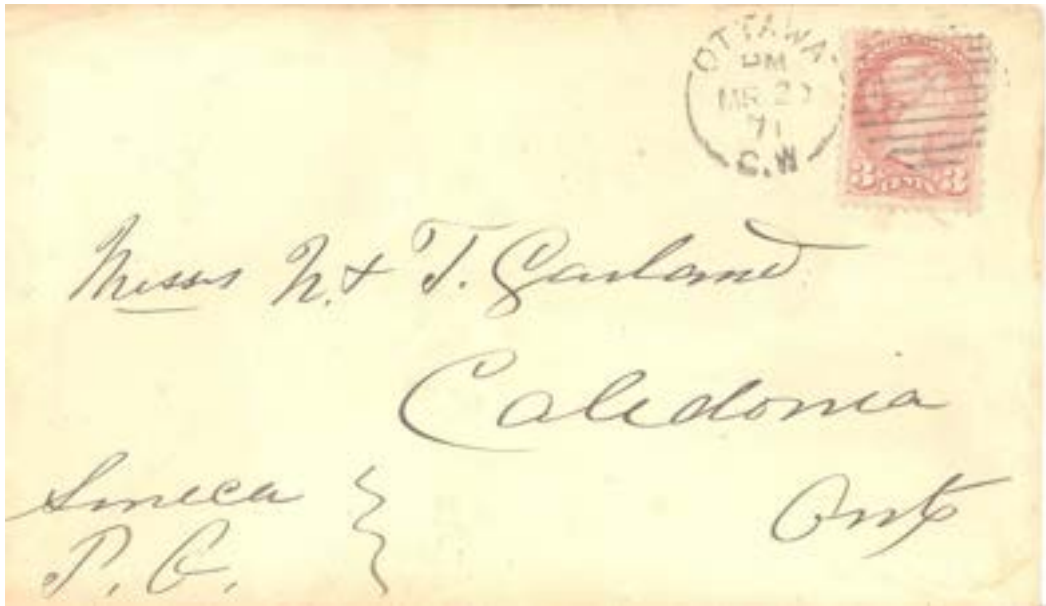 OTTAWA.
PM
MR
71
C.W
3 3
Messrs N. & T. Garland
Caledonia
Ont
Seneca
P. O.